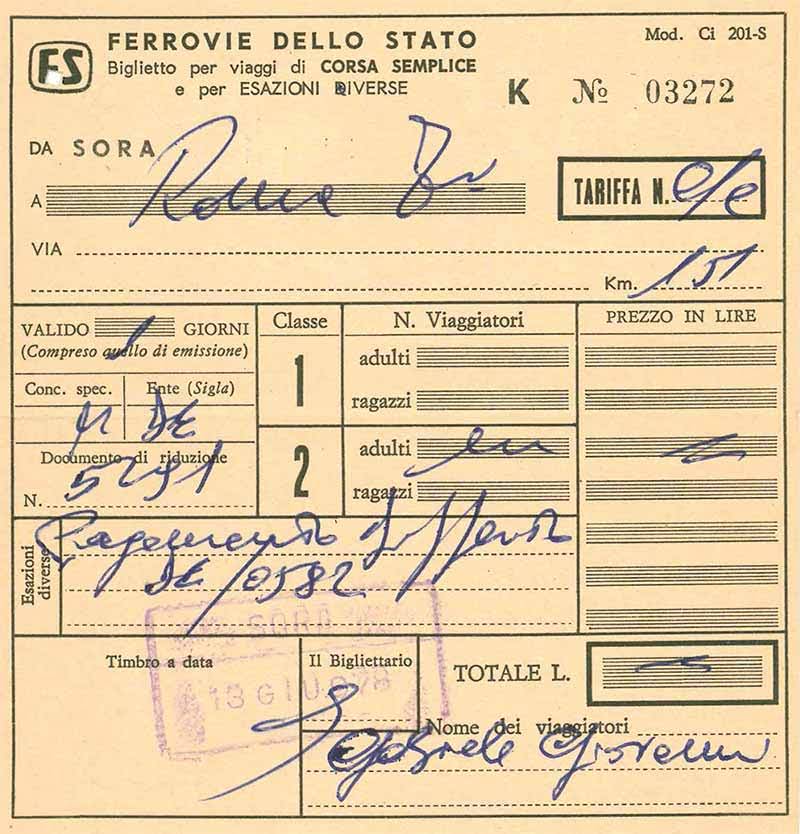 FS
FERROVIE DELLO STATO
Mod. Ci 201-S
Biglietto per viaggi di CORSA SEMPLICE
e per ESAZIONI DIVERSE
K № 03272
DA SORA
A Roma
TARIFFA N.
VIA
Km. 151
VALIDO 1 GIORNI
(Compreso quello di emissione)
Classe
N. Viaggiatori
PREZZO IN LIRE
1
adulti
ragazzi
Conc. spec.
Ente (Sigla)
DE
Documento di riduzione
N. 5291
2
adulti
ragazzi
Esazioni diverse
Pagamento differito
DE/0582
SORA
13 GIU 978
Timbro a data
Il Bigliettario
TOTALE L.
Nome dei viaggiatori
Gabriele Giovanni